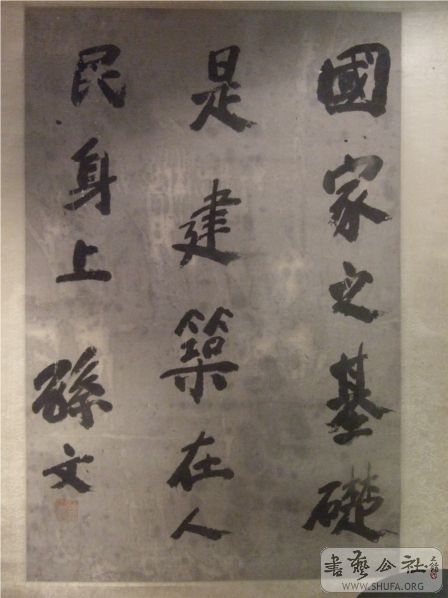 國家之基礎
是建築在人
民身上 孫文
書藝公社
WWW.SHUFA.ORG